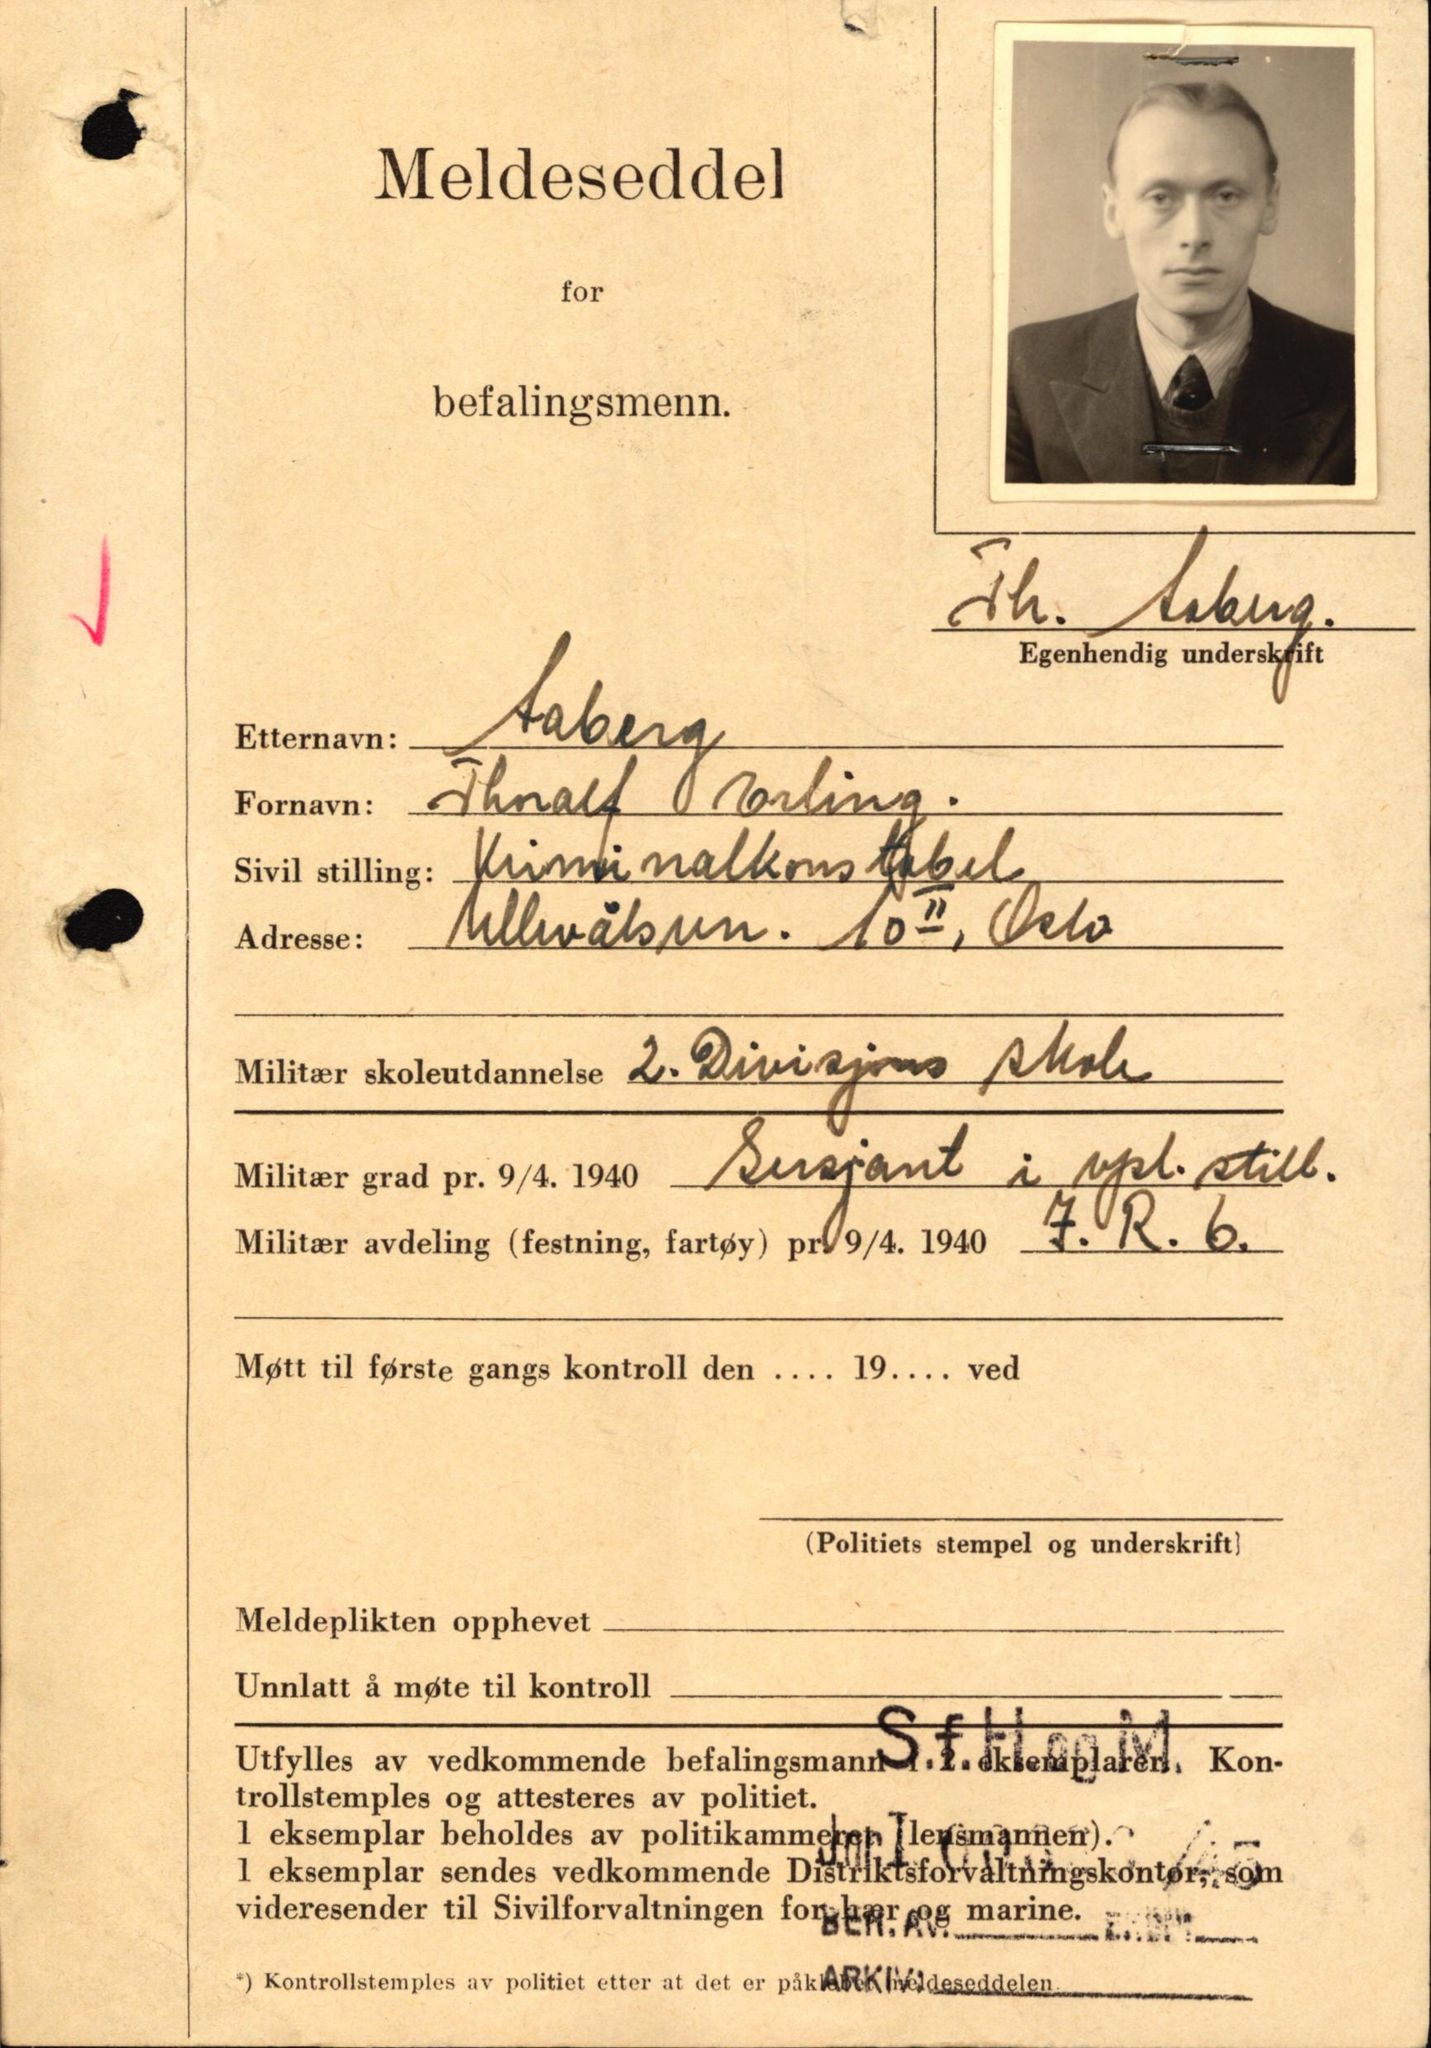 Meldeseddel
for
befalingsmenn.
Th. Aaberg.
Egenhendig underskrift
Etternavn: Aaberg
Fornavn: Thoralf Erling.
Sivil stilling: Kriminalkonstabel
Adresse: Ullevålsvn. 10 II, Oslo
Militær skoleutdannelse 2. Divisjons skole
Militær grad pr. 9/4. 1940 Sersjant i vpl. still.
Militær avdeling (festning, fartøy) pr. 9/4. 1940 I. R. 6.
Møtt til første gangs kontroll den .... 19.... ved
(Politiets stempel og underskrift)
Meldeplikten opphevet
Unnlatt å møte til kontroll
S.f.H og M.
Utfylles av vedkommende befalingsmann i 2 eksemplarer. Kon-
trollstemples og attesteres av politiet.
1 eksemplar beholdes av politikammeret (lensmannen).
1 eksemplar sendes vedkommende Distriktsforvaltningskontor, som
videresender til Sivilforvaltningen for hær og marine.
BEH. AV:
*) Kontrollstemples av politiet etter at det er påklebet meldeseddelen.
ARKIV: